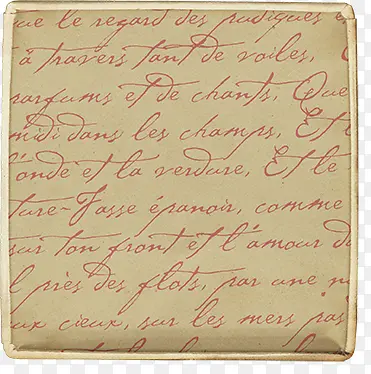 ue le regard des pudiques é
à travers tant de voiles,
parfums et de chants, Que
midi dans les champs, Et l
l'onde et la verdure, Et le
ture-Fasse épanoir, comme
sur ton front et l'amour d
l près des flots, par une n
ux cieux, sur les mers pas